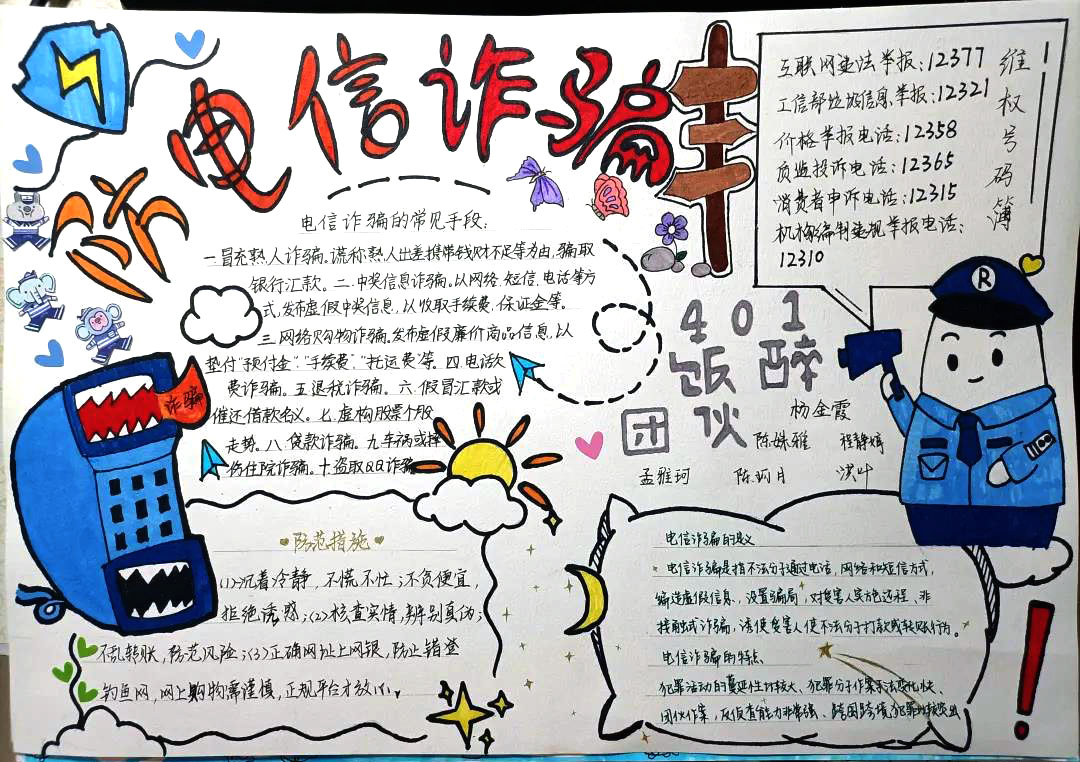 防电信诈骗
电信诈骗的常见手段:
一.冒充熟人诈骗。谎称熟人出差携带钱财不足等为由,骗取
银行汇款。二.中奖信息诈骗。以网络.短信.电话等方
式,发布虚假中奖信息,以收取手续费,保证金等。
三.网络购物诈骗.发布虚假廉价商品信息,以
垫付“预付金”.“手续费”.“托运费”等.四.电话欠
费诈骗。五.退税诈骗。六.假冒汇款或
催还借款名义。七.虚构股票个股
走势。八.贷款诈骗。九.车祸或摔
伤住院诈骗。十.盗取QQ诈骗
诈骗
维权号码簿
互联网违法举报:12377
工信部垃圾信息举报:12321
价格举报电话:12358
质监投诉电话:12365
消费者申诉电话:12315
机构编制违规举报电话:
12310
R
401
饭醉
团伙
杨金霞
陈姝雅 程静
孟雅珂 陈珂月 淇叶
防范措施
(1)沉着冷静,不慌不忙;不贪便宜,
拒绝诱惑;(2)核查实情,辨别真伪;
不乱转账,防范风险;(3)正确网址上网银,防止错登
钓鱼网,网上购物需谨慎,正规平台才放心。
电信诈骗的定义
电信诈骗是指不法分子通过电话,网络和短信方式,
编造虚假信息、设置骗局,对受害人实施远程、非
接触式诈骗,诱使受害人使不法分子打款或转账行为。
电信诈骗的特点
犯罪活动的蔓延性比较大、犯罪分子作案手法变化快、
团伙作案,反侦查能力非常强、跨国跨境犯罪比较突出